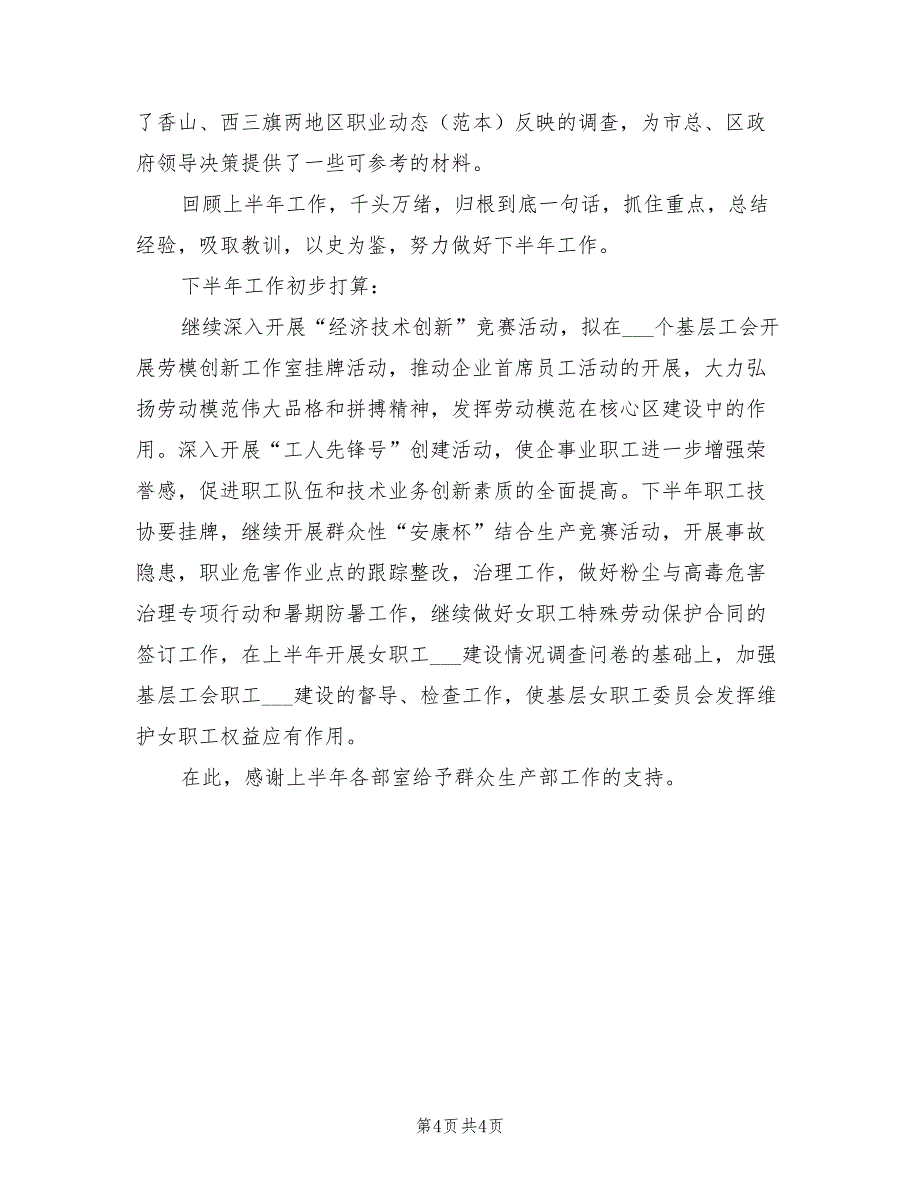 了香山、西三旗两地区职业动态（范本）反映的调查，为市总、区政
府领导决策提供了一些可参考的材料。
回顾上半年工作，千头万绪，归根到底一句话，抓住重点，总结
经验，吸取教训，以史为鉴，努力做好下半年工作。
下半年工作初步打算：
继续深入开展“经济技术创新”竞赛活动，拟在___个基层工会开
展劳模创新工作室挂牌活动，推动企业首席员工活动的开展，大力弘
扬劳动模范伟大品格和拼搏精神，发挥劳动模范在核心区建设中的作
用。深入开展“工人先锋号”创建活动，使企事业职工进一步增强荣
誉感，促进职工队伍和技术业务创新素质的全面提高。下半年职工技
协要挂牌，继续开展群众性“安康杯”结合生产竞赛活动，开展事故
隐患，职业危害作业点的跟踪整改，治理工作，做好粉尘与高毒危害
治理专项行动和暑期防暑工作，继续做好女职工特殊劳动保护合同的
签订工作，在上半年开展女职工___建设情况调查问卷的基础上，加强
基层工会职工___建设的督导、检查工作，使基层女职工委员会发挥维
护女职工权益应有作用。
在此，感谢上半年各部室给予群众生产部工作的支持。
第4页共4页